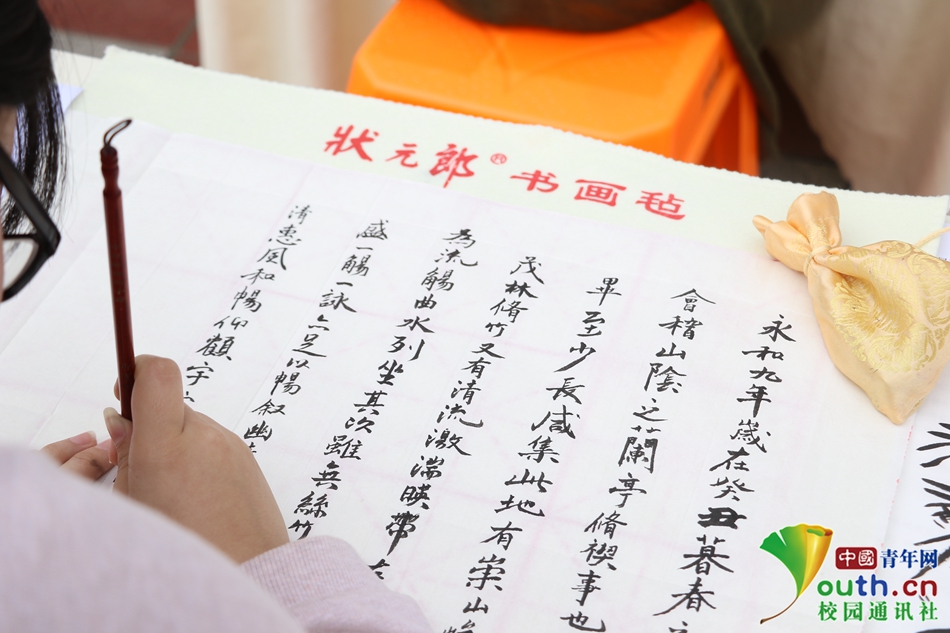 狀元郎® 书画毡
永和九年歲在癸丑暮春之
會稽山陰之蘭亭脩禊事也
畢至少長咸集此地有崇山
茂林脩竹又有清流激湍映帶左
為流觴曲水列坐其次雖無絲竹
盛一觴一詠亦足以暢叙幽
清惠風和暢仰觀宇
中國青年网
outh.cn
校园通讯社